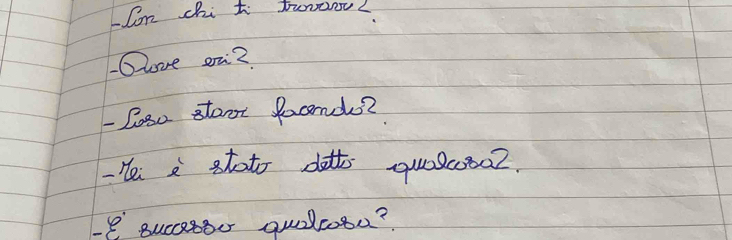 -Con chi ti trovavi?.
-Dove eri?.
-Cosa stavi facendo?.
-Mei è stato detto qualcosa?.
-E' successo qualcosa?.